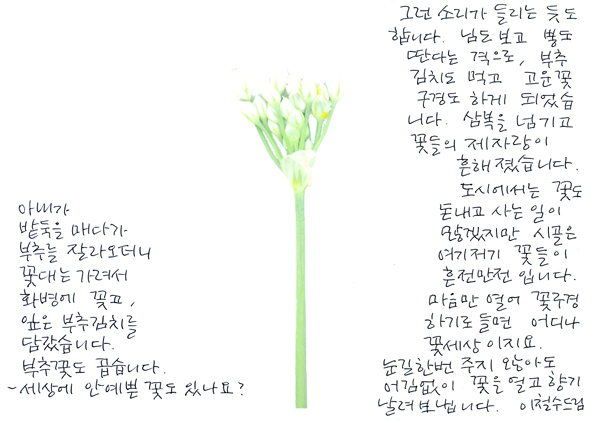 아내가
밭둑을 매다가
부추를 잘라오더니
꽃대는 가려서
화병에 꽂고,
잎은 부추김치를
담갔습니다.
부추꽃도 곱습니다.
~세상에 안예쁜 꽃도 있나요?
그런 소리가 들리는 듯도
합니다. 님도 보고 뽕도
딴다는 격으로, 부추
김치도 먹고 고운꽃
구경도 하게 되었습
니다. 삼복을 넘기고
꽃들의 제자랑이
흔해졌습니다.
도시에서는 꽃도
돈내고 사는 일이
많겠지만 시골은
여기저기 꽃들이
흔전만전 입니다.
마음만 열어 꽃구경
하기로 들면 어디나
꽃세상 이지요.
눈길한번 주지 않아도
어김없이 꽃을 열고 향기
날려보냅니다. 이철수드림